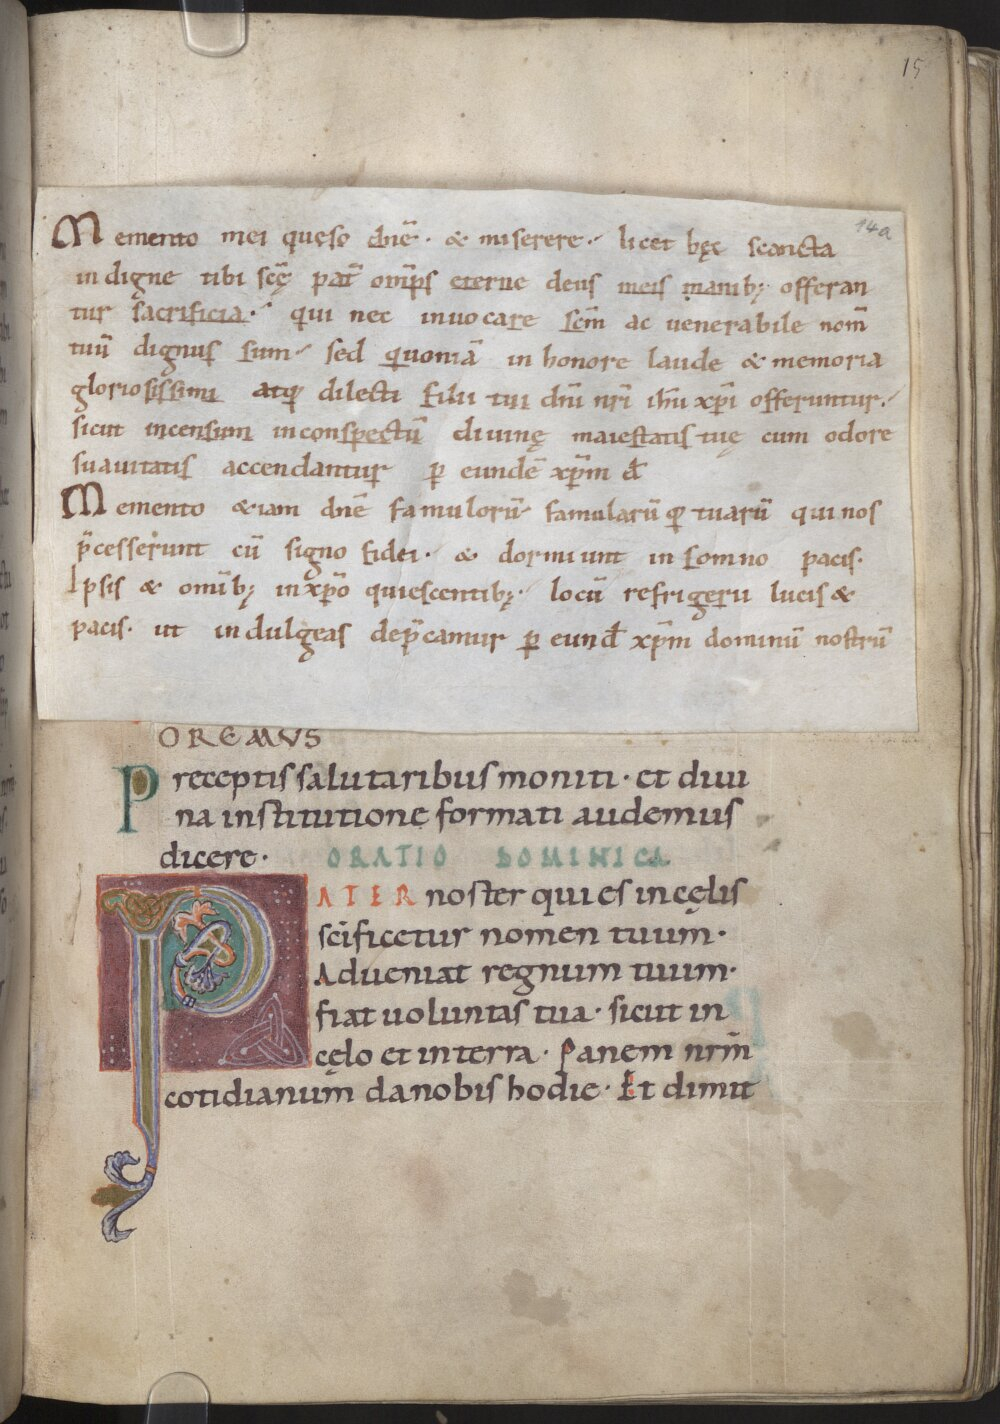 15
14a
Memento mei quęso dn̄e · & miserere · licet hęc scancta
indigne tibi scę̄ pat̄ om̄ps eterne deus meis manibꝫ offeran
tur sacrificia · qui nec inuocare scm̄ ac uenerabile nom̄
tuū dignus sum · sed quoniā in honore laude & memoria
gloriosissimi atqꝫ dilecti filii tui dn̄i nr̄i ihu̅ xp̄i offeruntur ·
sicut incensum inconspectū diuinę maiestatis tuę cum odore
suauitatis accendantur ꝑ eundē xp̄m d̄
Memento &iam dn̄e famulorū famularū qꝫ tuarū qui nos
p̄cesserunt cū signo fidei · & dormiunt in somno pacis ·
Ipsis & omīibꝫ inxp̄o quiescentibꝫ · locū refrigerii lucis &
pacis · ut indulgeas dep̄camur ꝑ eund̄ xp̄m dominū nostrū
OREMVS
Preceptis salutaribus moniti · et diui
na institutione formati audemus
dicere · ORATIO DOMINICA
PATER noster qui es in cęlis
sc̄ificetur nomen tuum ·
Adueniat regnum tuum ·
fiat uoluntas tua · sicut in
cęlo et in terra · Panem nrm̄
cotidianum da nobis hodie · Et dimit